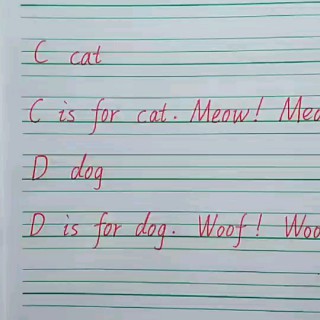 C cat
C is for cat. Meow! Meo
D dog
D is for dog. Woof! Woo